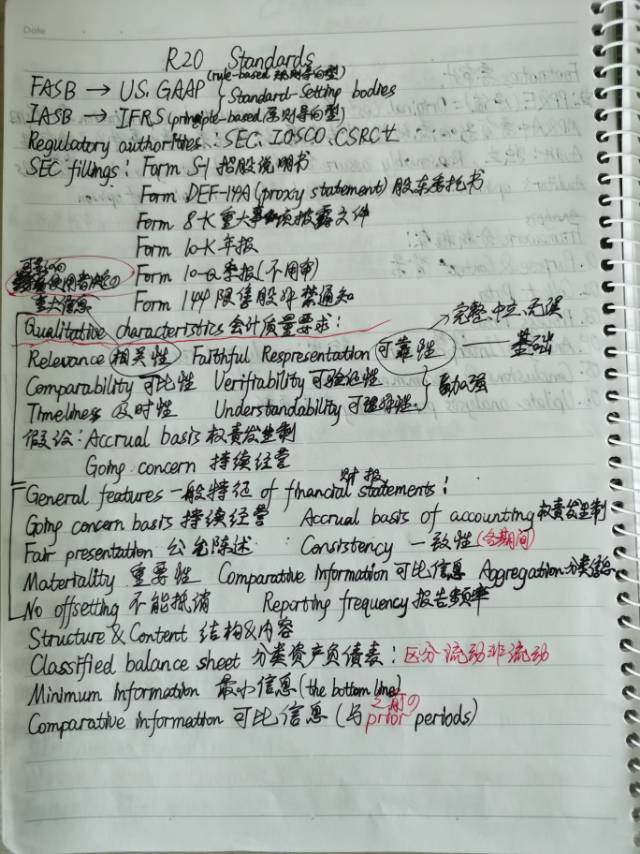 Date
R20 Standards
FASB → US. GAAP (rule-based 规则导向型)
Standard-Setting bodies
IASB → IFRS (principle-based/原则导向型)
Regulatory authorities : SEC、IOSCO、CSRC
SEC fillings : Form S-1 招股说明书
Form DEF-14A (proxy statement) 股东委托书
Form 8-K 重大事项披露文件
Form 10-K 年报
Form 10-Q 季报 (不用审)
Form 144 限售股解禁通知
可影响
使用者
重大信息
Qualitative characteristics 会计质量要求 :
→ 完整、中立、无误
Relevance 相关性 Faithful Respresentation 可靠性 —— 基础
Comparability 可比性 Verifiability 可验证性
Timeliness 及时性 Understandability 可理解性 } 加强
假设 : Accrual basis 权责发生制
Going concern 持续经营
General features 一般特征 of financial statements : 财报
Going concern basis 持续经营 Accrual basis of accounting 权责发生制
Fair presentation 公允陈述 Consistency 一致性 (各期间)
Materiality 重要性 Comparative Information 可比信息 Aggregation 分类
No offsetting 不能抵消 Reporting frequency 报告频率
Structure & Content 结构&内容
Classified balance sheet 分类资产负债表 : 区分流动非流动
Minimum Information 最小信息 (the bottom line)
Comparative information 可比信息 (与 prior periods) 之前の